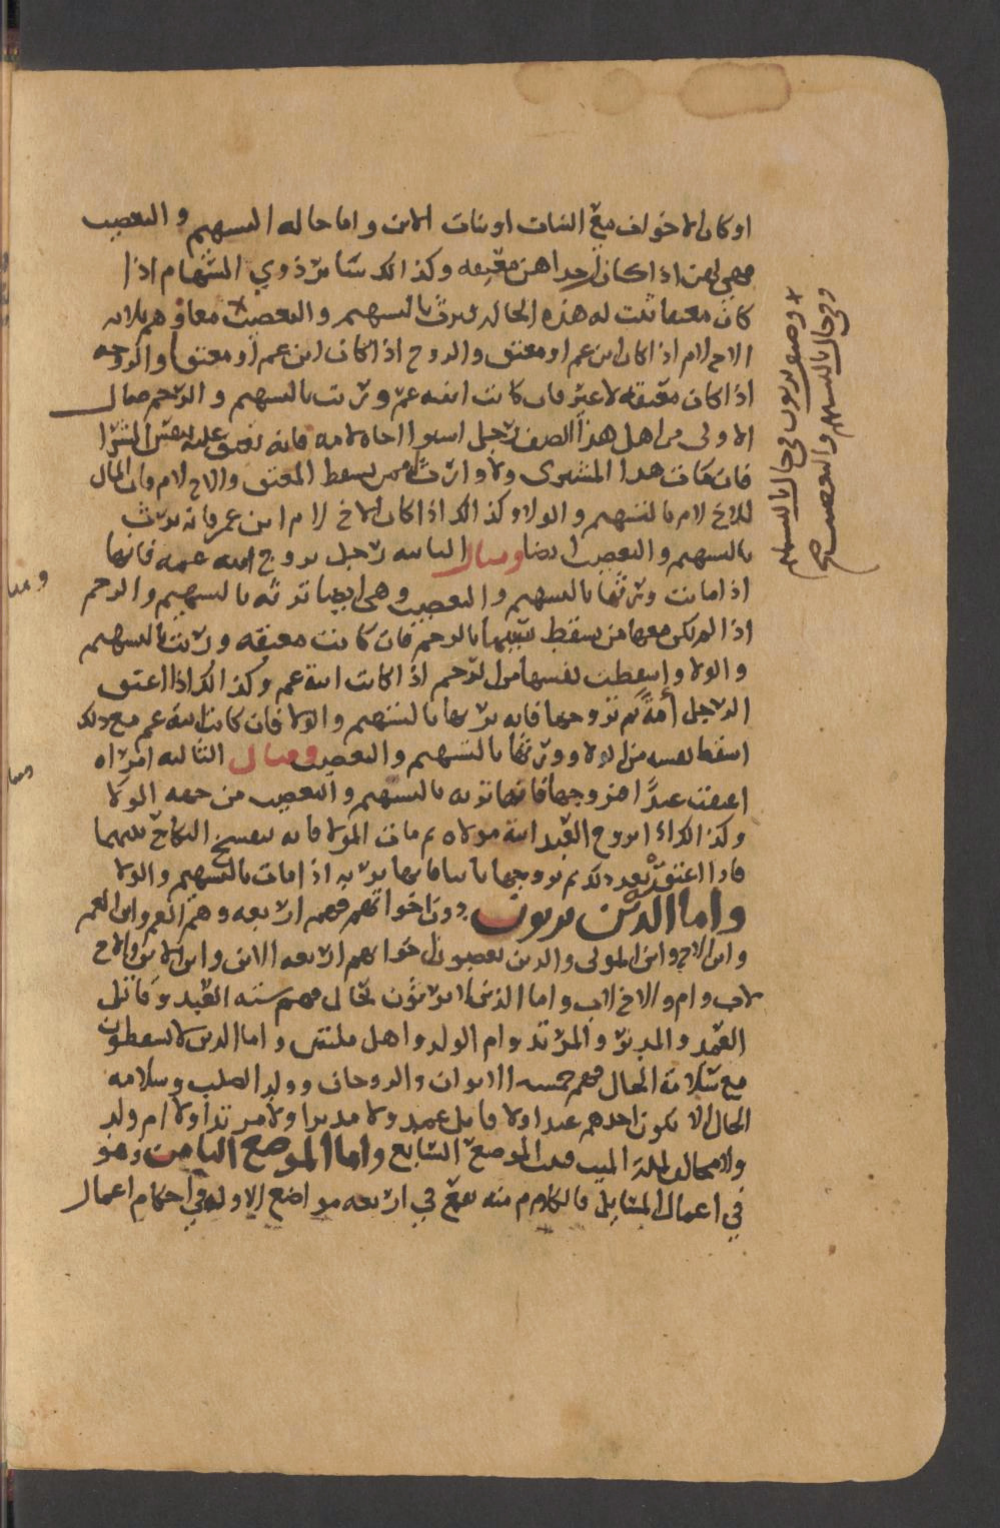 او كان الاخوات مع البنات او بنات الابن واما حاله السهم والتعصيب
فهي لهن اذا كان احداهن معتقه وكذالك سائر ذوي السهام اذا
كان معتقا ثبت له هذه الحاله فيرث بالسهم والتعصيب معا وهم ثلاثه
الاخ لام اذا كان ابن عم او معتق والزوج اذا كان ابن عم او معتق والزوجه
اذا كان معتقه لا غير فان كانت ابنه عم ورثت بالسهم والرحم مثال
الاولى من اهل هذا الصنف رجل اشترا اخاه لامه فانه يعتق عليه بنفس الشرا
فان مات هذا المشترى ولا وارث له ممن يسقط المعتق والاخ لام فان المال
للاخ لام بالسهم والولا وكذالك اذا كان الاخ لام ابن عم فانه يرث
بالسهم والتعصيب ايضا ومثال الثانيه رجل تزوج ابنه عمه فانها
اذا ماتت ورثها بالسهم والتعصيب وهي ايضا ترثه بالسهم والرحم
اذا لم يكن معها من يسقط سببها بالرحم فان كانت معتقه ورثت بالسهم
والولا واسقطت نفسها من الرحم اذا كانت ابنة عم وكذالك اذا اعتق
الرجل أمة ثم تزوجها فانه يرثها بالسهم والولا فان كانت ابنة عم مع ذلك
اسقط نفسه من الولا وورثها بالسهم والتعصيب ومثال الثالثه امراه
اعتقت عبدًا فتزوجها فانها ترثه بالسهم والتعصيب من جهه الولا
وكذالك اذا تزوج العبد ابنة مولاه ثم مات المولا فانه ينفسخ النكاح بينهما
فاذا اعتقته بعد ذلك ثم تزوجها ثانيا فانها ترثه اذا مات بالسهم والولا
واما الذين يرثون دون اخواتهم فهم اربعه وهم العم وابن العم
وابن الاخ وابن المولى والذين يعصبون اخواتهم اربعه الابن وابن الابن والاخ
لاب وام والاخ لاب واما الذين لا يرثون بحال فهم سته العبد وقاتل
العمد والمدبر والمرتد وام الولد واهل ملتين واما الذين لا يسقطون
مع سلامة الحال فهم خمسه الابوان والزوجان وولد الصلب وسلامه
الحال الا يكون احدهم عبدا ولا قاتل عمد ولا مدبرا ولا مرتدا ولا ام ولد
ولا مخالف لملة الميت فهذا الموضع السابع واما الموضع الثامن وهو
في اعمال المسايل فالكلام منه يقع في اربعه مواضع الاول في احكام اعمال
وصنف يرثون في حال بالسهم
وفي حال بالسهم والتعصيب صح